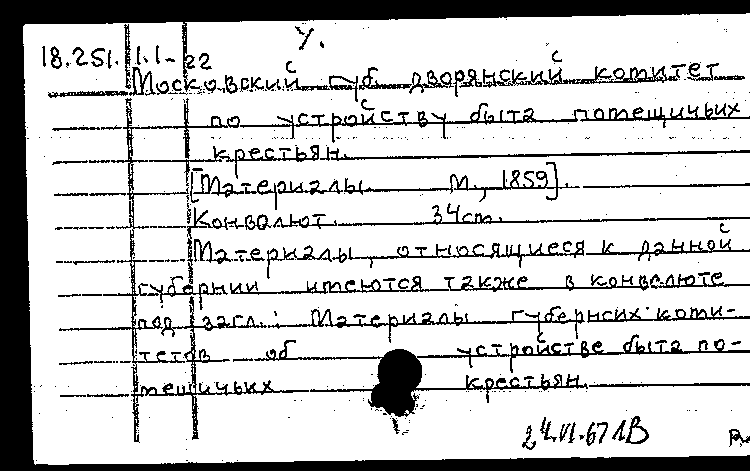 У.
18.251. 1.1-22
Московский губ. дворянский комитет
по устройству быта помещичьих
крестьян.
[Материалы. М., 1859].
Конволют. 34cm.
Материалы, относящиеся к данной
губернии имеются также в конволюте
под загл.: Материалы губернсих коми-
тетов об устройстве быта по-
мещичьих крестьян.
24.VI.67 ЛВ